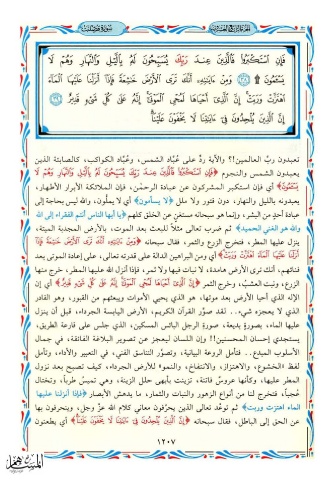 فَإِنِ اسْتَكْبَرُوا فَالَّذِينَ عِندَ رَبِّكَ يُسَبِّحُونَ لَهُ بِاللَّيْلِ وَالنَّهَارِ وَهُمْ لَا
يَسْأَمُونَ ۩ ٣٨ وَمِنْ آيَاتِهِ أَنَّكَ تَرَى الْأَرْضَ خَاشِعَةً فَإِذَا أَنزَلْنَا عَلَيْهَا الْمَاءَ
اهْتَزَّتْ وَرَبَتْ إِنَّ الَّذِي أَحْيَاهَا لَمُحْيِي الْمَوْتَى إِنَّهُ عَلَى كُلِّ شَيْءٍ قَدِيرٌ ٣٩
إِنَّ الَّذِينَ يُلْحِدُونَ فِي آيَاتِنَا لَا يَخْفَوْنَ عَلَيْنَا
تعبدون ربَّ العالمين!؟ والآية ردٌّ على عُبَّاد الشمس، وعُبَّاد الكواكب، كالصابئة الذين
يعبدون الشمس والنجوم ﴿فَإِنِ اسْتَكْبَرُوا فَالَّذِينَ عِندَ رَبِّكَ يُسَبِّحُونَ لَهُ بِاللَّيْلِ وَالنَّهَارِ وَهُمْ لَا
يَسْأَمُونَ﴾ أي فإن استكبر المشركون عن عبادة الرحمٰن، فإن الملائكة الأبرار الأطهار،
يعبدونه بالليل والنهار، دون فتور ولا ملل ﴿لا يسأمون﴾ أي لا يملُّون، والله ليس بحاجة إلى
عبادة أحدٍ من البشر، وإنما هو سبحانه مستغنٍ عن الخلق كلهم ﴿يا أيها الناس أنتم الفقراء إلى الله
والله هو الغني الحميد﴾ ثم ضرب تعالى مثلاً للبعث بعد الموت، بالأرض المجدبة الميتة،
ينزل عليها المطر، فتخرج الزرع والثمر، فقال سبحانه ﴿وَمِنْ آيَاتِهِ أَنَّكَ تَرَى الْأَرْضَ خَاشِعَةً فَإِذَا
أَنزَلْنَا عَلَيْهَا الْمَاءَ اهْتَزَّتْ وَرَبَتْ﴾ أي ومن البراهين الدالة على قدرته تعالى، على إعادة الموتى بعد
فنائهم، أنك ترى الأرض هامدة، لا نبات فيها ولا ثمر، فإذا أنزل الله عليها المطر، خرج منها
الزرع، ونبت العشب، وخرج الثمر ﴿إِنَّ الَّذِي أَحْيَاهَا لَمُحْيِي الْمَوْتَى إِنَّهُ عَلَى كُلِّ شَيْءٍ قَدِيرٌ﴾ أي إن
الإله الذي أحيا الأرض بعد موتها، هو الذي يحيي الأموات ويبعثهم من القبور، وهو القادر
الذي لا يعجزه شيء.. لقد صوَّر القرآن الكريم، الأرض اليابسة الجرداء، قبل أن ينزل
عليها الماء، بصورةٍ بديعة، صورة الرجل البائس المسكين، الذي جلس على قارعة الطريق،
يستجدي إحسان المحسنين!! وإن اللسان ليعجز عن تصوير البلاغة الفائقة، في جمال
الأسلوب المبدع.. فتأمل الروعة البيانية، وتصوَّر التناسق الفني، في التعبير والأداء، وتأمل
لفظ الخشوع، والاهتزاز، والانتفاخ، والنمو للأرض الجرداء، كيف تصبح بعد نزول
المطر عليها، وكأنها عروسٌ فاتنة، تزينت بأبهى حلل الزينة، وهي تميسُ طرباً، وتختال
عُجباً، فتخرج لنا من أنواع الزهور والنبات والثمار، ما يدهش الأبصار ﴿فإذا أنزلنا عليها
الماء اهتزت وربت﴾ ثم توعَّد تعالى الذين يحرِّفون معاني كلام الله عزَّ وجل، وينحرفون بها
عن الحق إلى الباطل، فقال سبحانه ﴿إِنَّ الَّذِينَ يُلْحِدُونَ فِي آيَاتِنَا لَا يَخْفَوْنَ عَلَيْنَا﴾ أي يطعنون
١٢٠٧